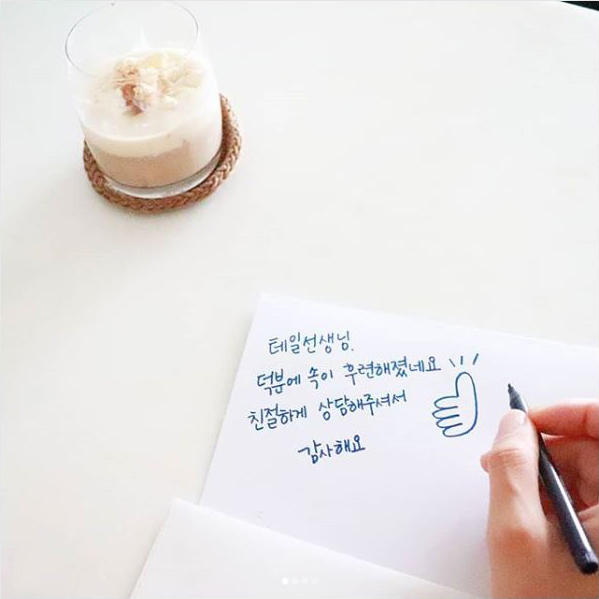 테일선생님.
덕분에 속이 후련해졌네요
친절하게 상담해주셔서
감사해요